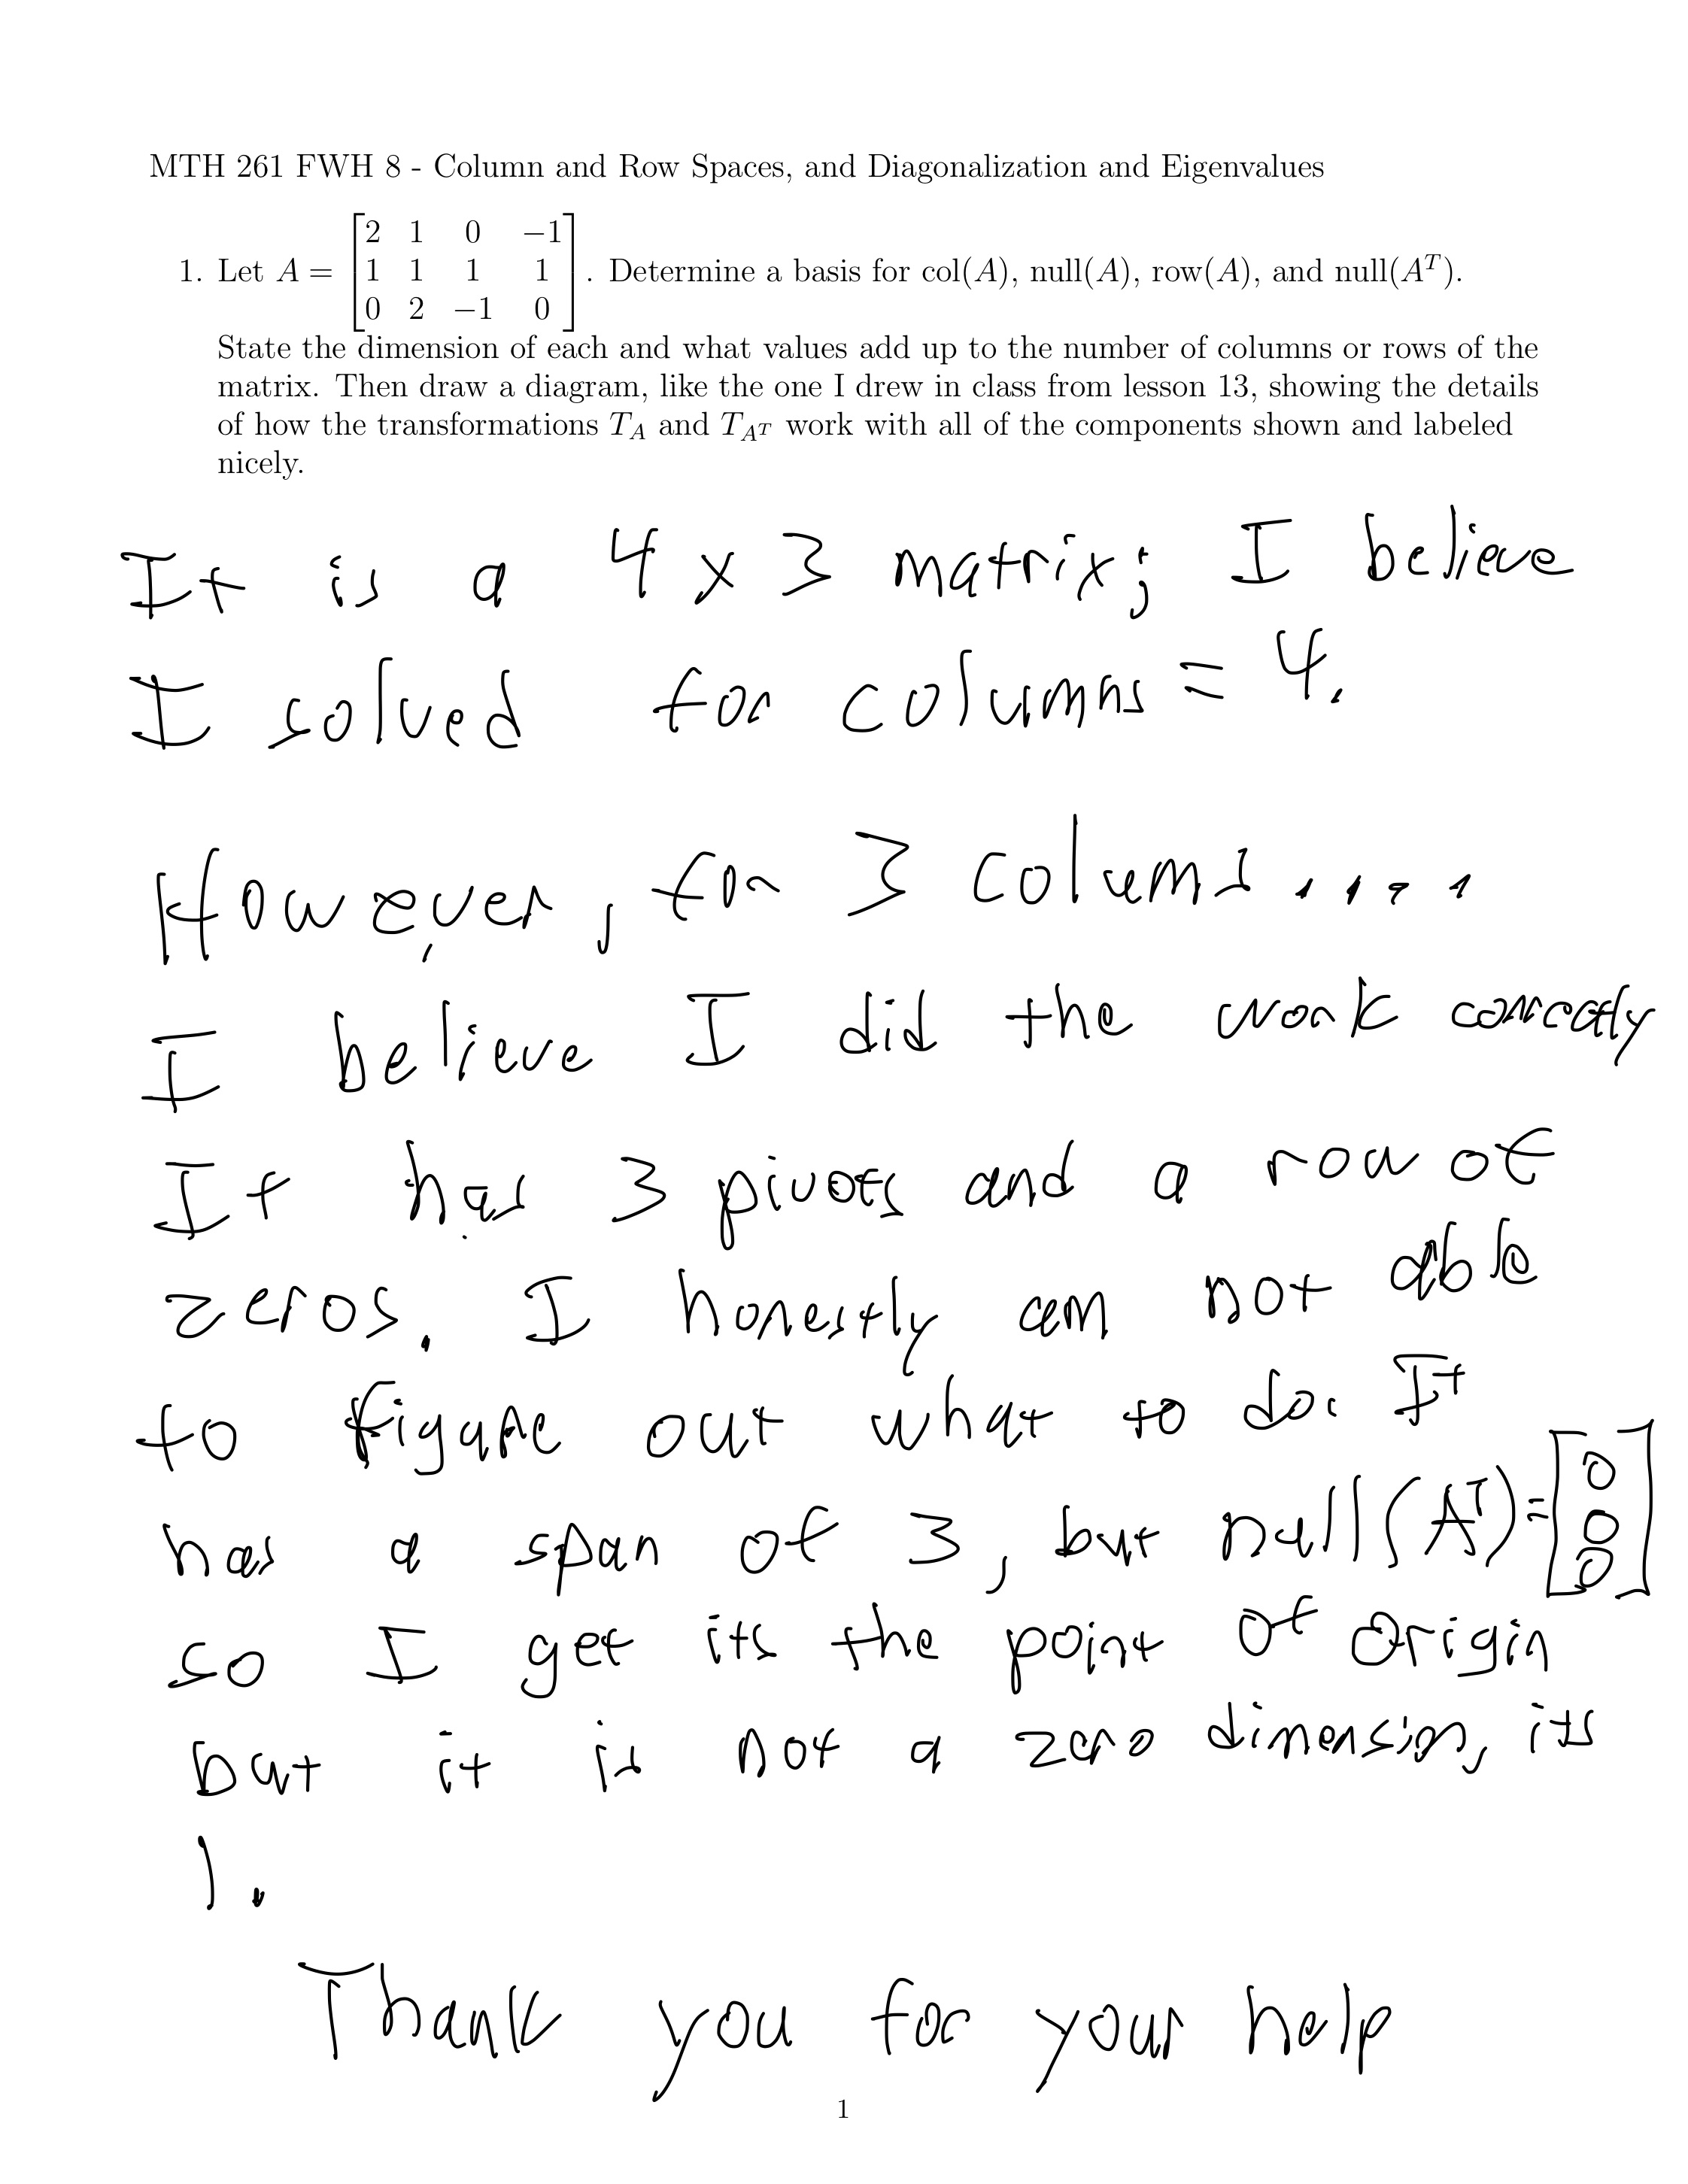 MTH 261 FWH 8 - Column and Row Spaces, and Diagonalization and Eigenvalues
1. Let A = [2 1 0 −1; 1 1 1 1; 0 2 −1 0]. Determine a basis for col(A), null(A), row(A), and null(A^T).
State the dimension of each and what values add up to the number of columns or rows of the
matrix. Then draw a diagram, like the one I drew in class from lesson 13, showing the details
of how the transformations T_A and T_{A^T} work with all of the components shown and labeled
nicely.
It is a 4 x 3 matrix; I believe
I solved for columns = 4.
However, for 3 colums....
I believe I did the work correctly
It has 3 pivots and a row of
zeros. I honestly am not able
to figure out what to do. It
has a span of 3, but null(A^T)=[0 0 0]
so I get its the point of Origin
but it is not a zero dimension, its
1.
Thank you for your help
1